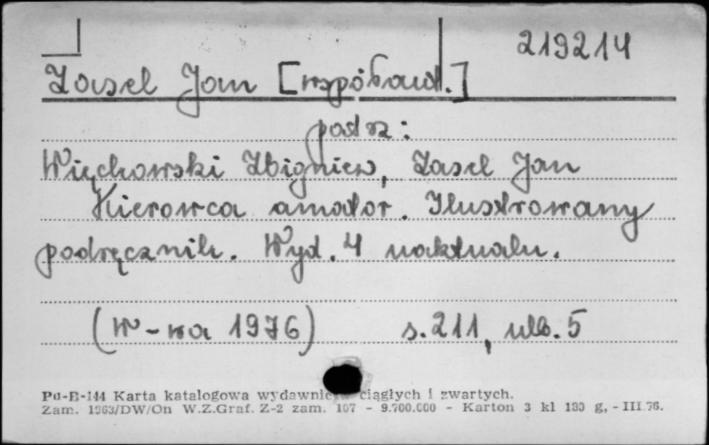 219214
Zasel Jan [współaut.]
patrz:
Więckowski Zbigniew, Zasel Jan
Kierowca amator. Ilustrowany
podręcznik. Wyd. 4 uaktualn.
(W-wa 1976) s. 211, nlb. 5
Pu-B-144 Karta katalogowa wydawnictw ciągłych i zwartych.
Zam. 1963/DW/On W.Z.Graf. Z-2 zam. 107 - 9.700.000 - Karton 3 kl 180 g, - III.76.